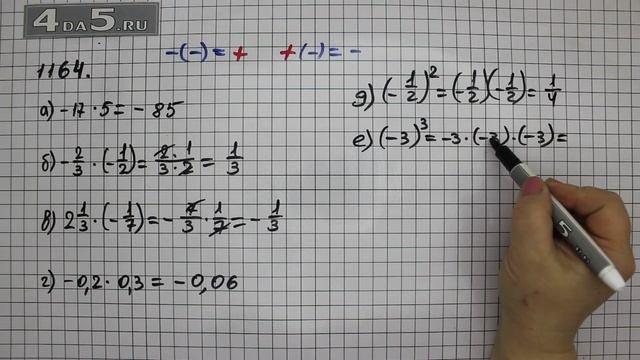 4DA5.RU
-(-) = + +(-) = -
1164.
а) -17 · 5 = -85
б) -2/3 · (-1/2) = 2·1/3·2 = 1/3
в) 2 1/3 · (-1/7) = -7/3 · 1/7 = -1/3
г) -0,2 · 0,3 = -0,06
д) (-1/2)² = (-1/2)(-1/2) = 1/4
е) (-3)³ = -3 · (-3) · (-3) =
5